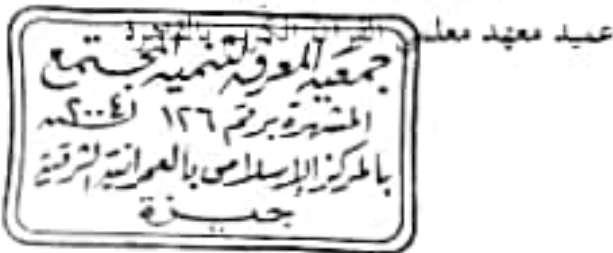 عميد معهد معلمى
جمعية المعرفة لتنمية المجتمع
المشهرة برقم ١٢٦ لسنة ٢٠٠٤
بالمركز الإسلامى بالعمرانية الشرقية
جيزة